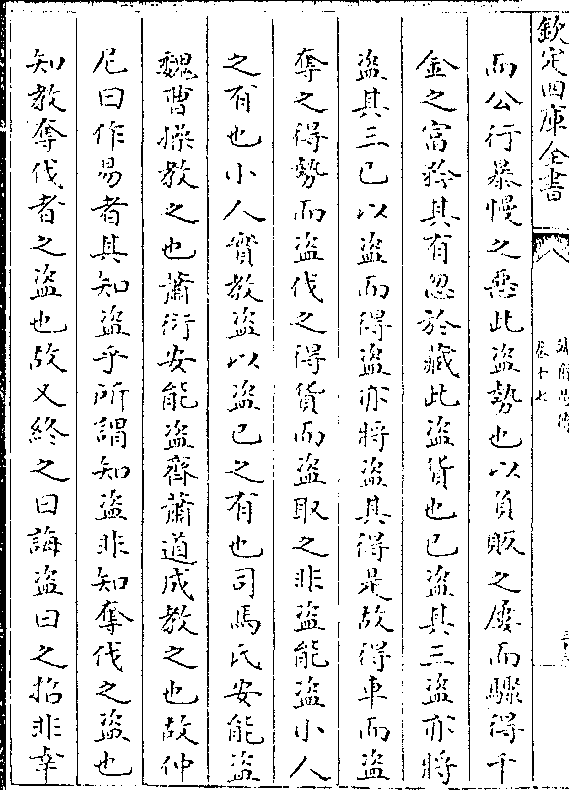 欽定四庫全書
卷十七
而公行暴慢之惡此盜勢也以負販之屠而驟得千
金之富矜其有忽於藏此盜貨也已盜其三盜亦將
盜其三已以盜而得盜亦將盜其得是故得車而盜
奪之得勢而盜伐之得貨而盜取之非盜能盜小人
之有也小人實教盜以盜已之有也司馬氏安能盜
魏曹操教之也蕭衍安能盜齊蕭道成教之也故仲
尼曰作易者其知盜乎所謂知盜非知奪伐之盜也
知教奪伐者之盜也故又終之曰誨盜曰之招非幸